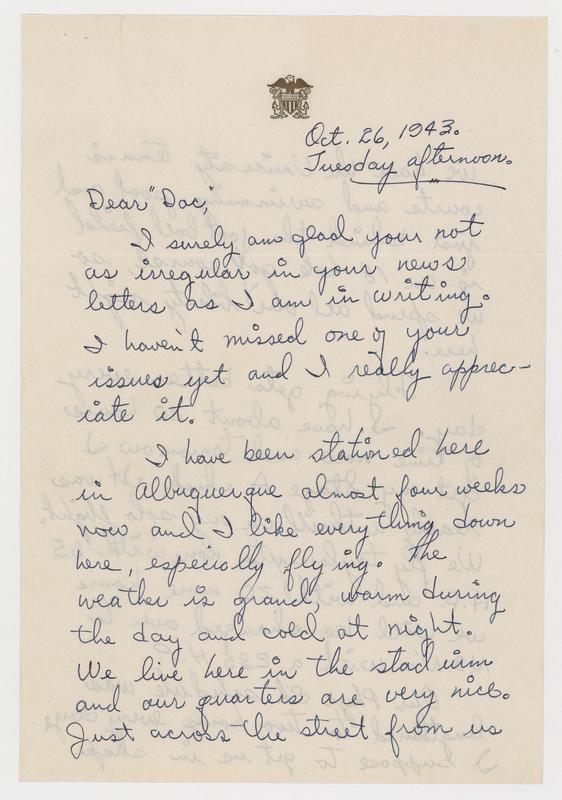 Oct. 26, 1943.
Tuesday afternoon.
Dear "Doc,"
I surely am glad your not
as irregular in your news
letters as I am in writing.
I haven't missed one of your
issues yet and I really apprec-
iate it.
I have been stationed here
in Albuquerque almost four weeks
now and I like everything down
here, especially flying. The
weather is grand, warm during
the day and cold at night.
We live here in the stadium
and our quarters are very nice.
Just across the street from us